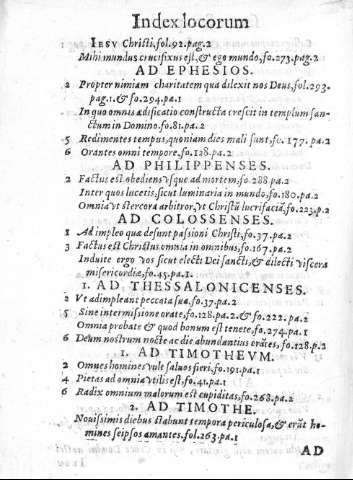 Index locorum
1 IESV Christi, fol. 92. pag. 2
Mihi mundus crucifixus est, & ego mundo, fo. 273. pag. 2
AD EPHESIOS.
2 Propter nimiam charitatem qua dilexit nos Deus, fol. 293.
pag. 1. & fo. 294. pa. 1
In quo omnis ædificatio constructa crescit in templum san-
ctum in Domino. fo. 81. pa. 2
5 Redimentes tempus, quoniam dies mali sunt, fc. 177. pa. 2
6 Orantes omni tempore, fo. 128. pa. 2
AD PHILIPPENSES.
2 Factus est obediens vsque ad mortem, fo. 288 pa. 2
Inter quos lucetis, sicut luminaria in mundo, fo. 180. pa. 2
Omnia vt stercora arbitror, vt Christū lucrifaciā, fo. 223, p. 2
AD COLOSSENSES.
1 Ad impleo qua desunt passioni Christi, fo. 37. pa. 2
3 Factus est Christus omnia in omnibus, fo. 167. pa. 2
Induite ergo vos sicut electi Dei sancti, & dilecti viscera
misericordiæ, fo. 45. pa. 1.
1. AD THESSALONICENSES.
2 Vt adimpleant peccata sua, fo. 37. pa. 2
5 Sine intermissione orate, fo. 128. pa. 2. & fo. 222. pa. 2
Omnia probate & quod bonum est tenete, fo. 274. pa. 1
6 Deum nostrum nocte ac die abundantius orātes, fo. 128. p. 2
1. AD TIMOTHEVM.
2 Omnes homines vule saluos fieri, fo. 191. pa. 1
4 Pietas ad omnia vtilis est, fo. 41. pa. 1
6 Radix omnium malorum est cupiditas, fo. 268. pa. 2
2. AD TIMOTHE.
Nouissimis diebus stabunt tempora periculosa, & erūt ho-
mines seipsos amantes. fol. 263. pa. 1
AD